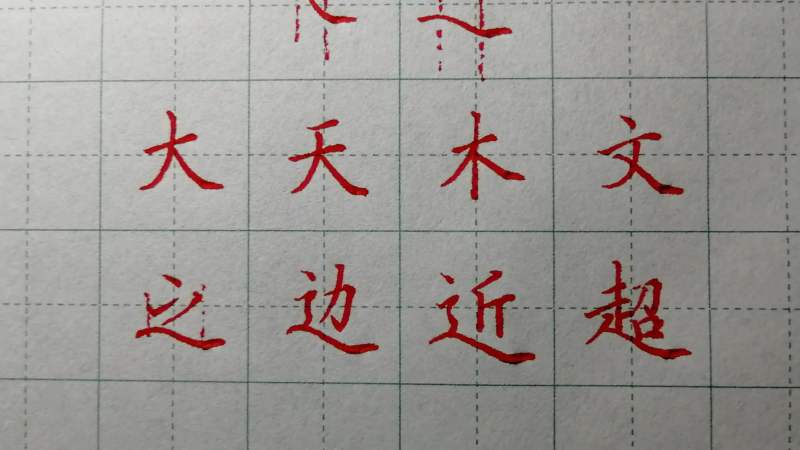 大天木文
之边近超